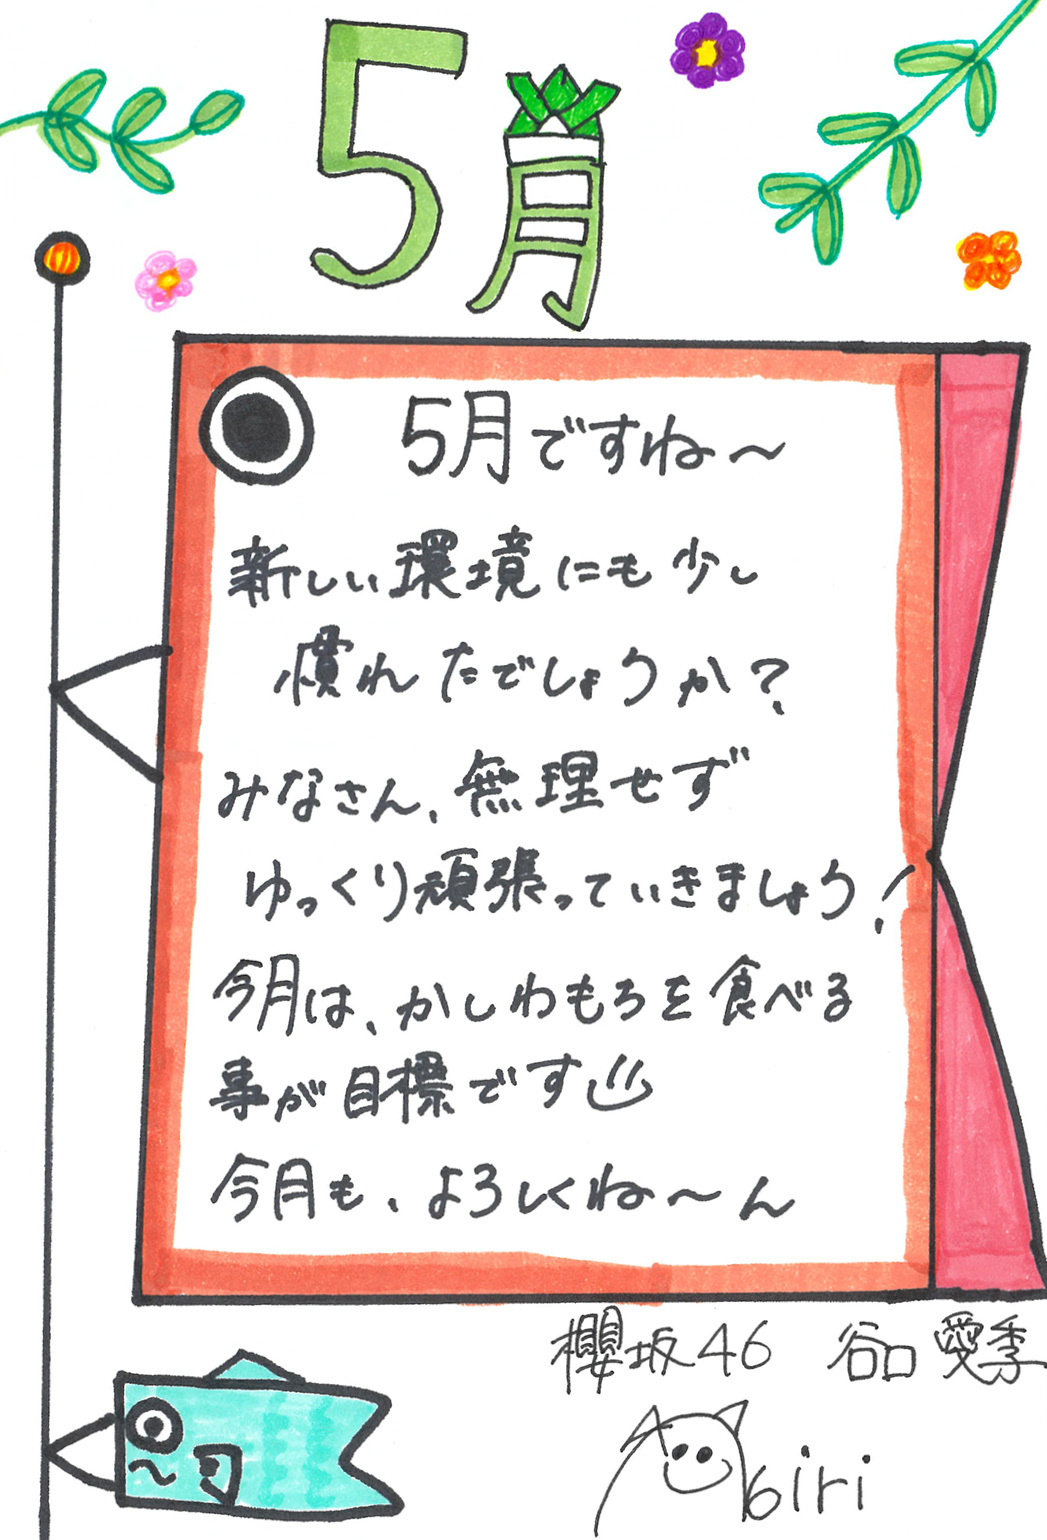 5月
5月ですね〜
新しい環境にも少し
慣れたでしょうか?
みなさん、無理せず
ゆっくり頑張っていきましょう!
今月は、かしわもちを食べる
事が目標です
今月も、よろしくね〜ん
櫻坂46 谷口愛季
Abiri